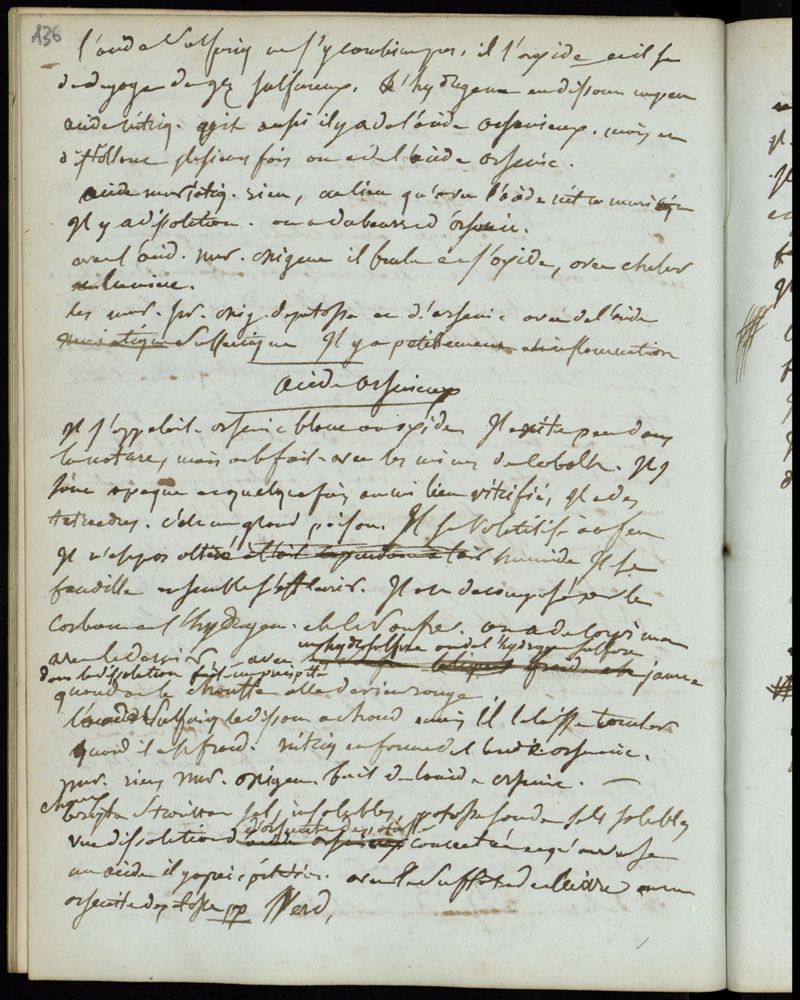 136
l'acide sulfuriq ne s'y combine pas, il l'oxide et il se
dedgage de gaz sulfureux. l'hydrogene en dissous un peu
acide nitriq. agit aussi il y a de l'acide arsenieux. mais en
distillant plusieurs fois on a de l'acide arsenic.
acide muriatiq. rien, au lieu qu'avec l'acide nitro muriatiq
Il y a dissolution. on a du beurre d'arsenic.
avec l'acid. mur. oxigene il brule et s'oxide, avec chaleur
et lumiere.
les mur. sur. oxig. de potasse et d'arsenic avec de l'acide
muriatique sulfurique Il y a petillement et inflammation
acide arsenieux
Il s'appelait arsenic blanc ou oxide. Il existe peu dans
la nature, mais on le fait avec les mines de cobalt. Il y
opaque et quelquefois aussi bien vitrifié, Il a des
tetraedres. c'est un grand poison. Il se volatilise au feu
Il n'est pas alteré à l'air humide Il se
ensuite s'effleurir. Il est decomposé par le
carbone et l'hydrogene. et le soufre. on a de l'orpiment
avec le dernier avec un hydrosulfure ou de l'hydrogene sulfuré
dans la dissolution fait un precipité jaune
quand on le chauffe elle devient rouge
l'acide sulfuriq le dissou a chaud mais Il le laisse tomber
quand il est froid. nitriq en forme de l'acide arsenic.
mur. rien mur. oxigen. fait de l'acide arsenic.
chaux
baryte strontiane sels insolubles, potasse soude sels solubles
d'arsenite de potasse
une dissolution d'acide arsenieux concentrée et qu'on verse
un acide il y a precipitation. avec le sulfate de cuivre on a un
arsenite de potasse pp Verd,